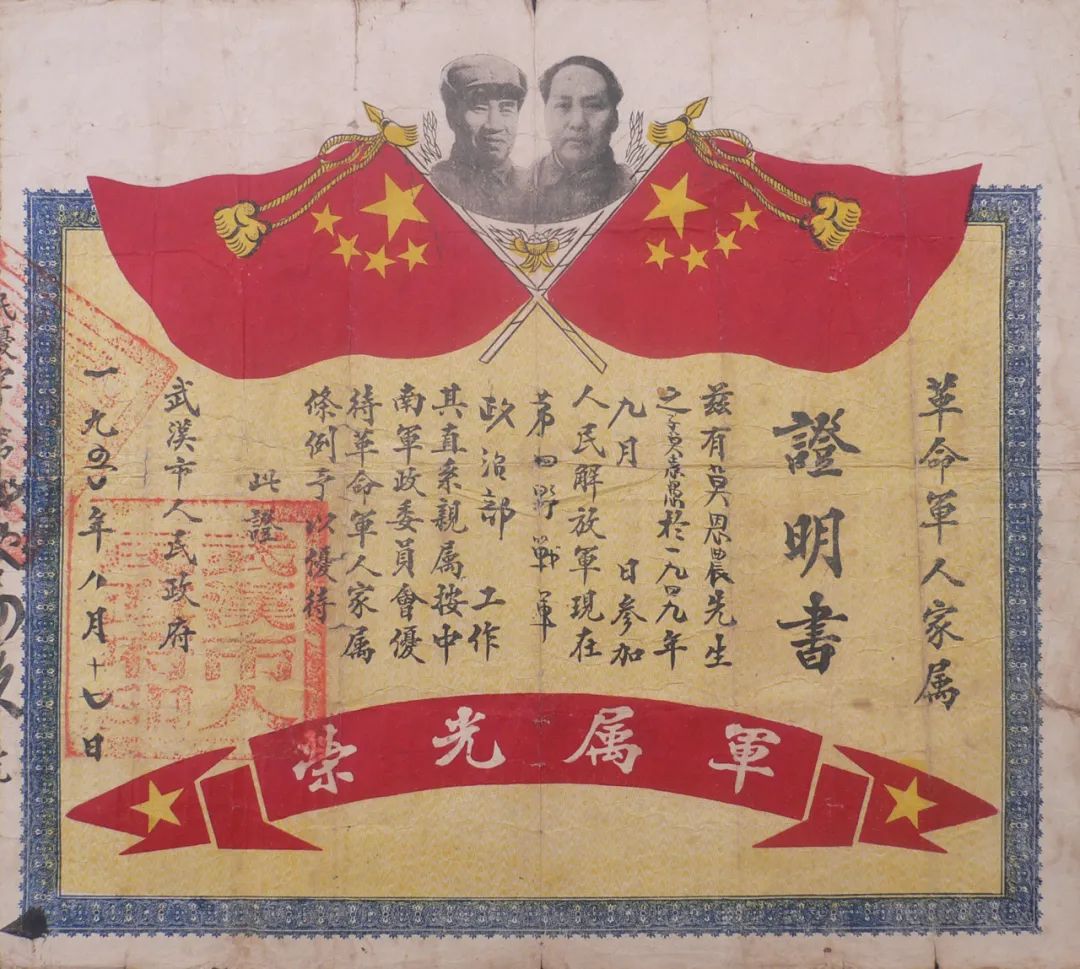 革命軍人家属
證明書
茲有莫恩農先生
之子 於一九四九年
九月 日参加
人民解放軍現在
第四野戰軍
政治部 工作
其直系親属按中
南軍政委員會優
待革命軍人家属
條例予以優待
此證
武漢市人民政府
一九五〇年八月十七日
軍属光榮
武漢市人民政府印